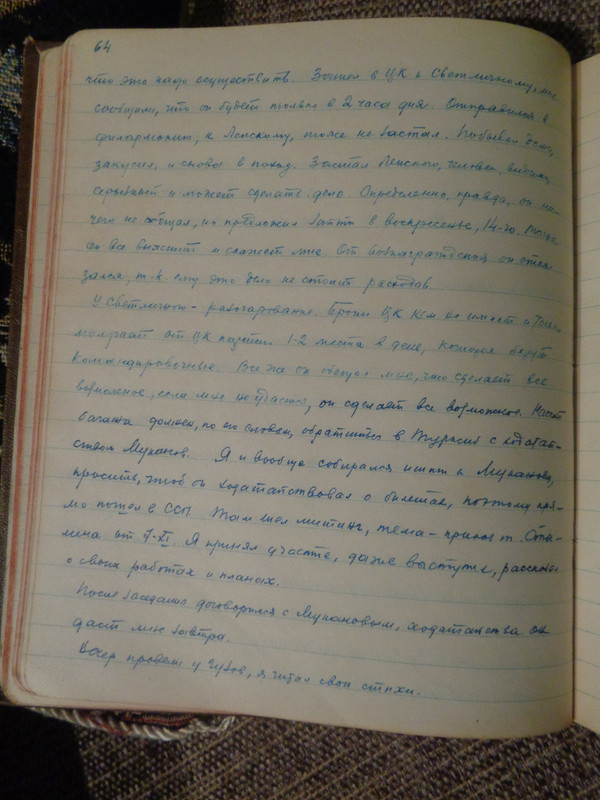 64
что это надо осуществить. Зашел в ЦК к Светличному, мне
сообщили, что он будет только в 2 часа дня. Отправился в
филармонию, к Ленскому, тоже не застал. Побывал дома,
закусил, и снова в поход. Застал Ленского, человек, видимо,
серьезный и может сделать дело. Определенно, правда, он ни-
чего не обещал, но предложил зайти в воскресенье, 14-го. Тогда
он все выяснит и скажет мне. От вознаграждения он отка
зался, т.к. ему это дело не стоит расходов.
У Светличного - разочарование. Брони ЦК КП(б)К не имеет и
от ЦК 1-2 места в день, которые берут
командировочные. Все же он обещал мне, что сделает все
возможное, если мне не удастся, он сделает все возможное. Насчет
багажа должен, по его словам, обратиться в Турксиб с ходатай-
ством Муканова. Я и вообще собирался итти к Муканову,
просить, чтоб он ходатайствовал о билетах, поэтому пря-
мо пошел в ССП. Там шел митинг, тема - приказ т. Ста-
лина от 7-XI. Я принял участие, даже выступил, рассказал
о своих работах и планах.
После заседания договорился с Мукановым, ходатайства он
даст мне завтра.
Вечер провели у , я читал свои стихи.